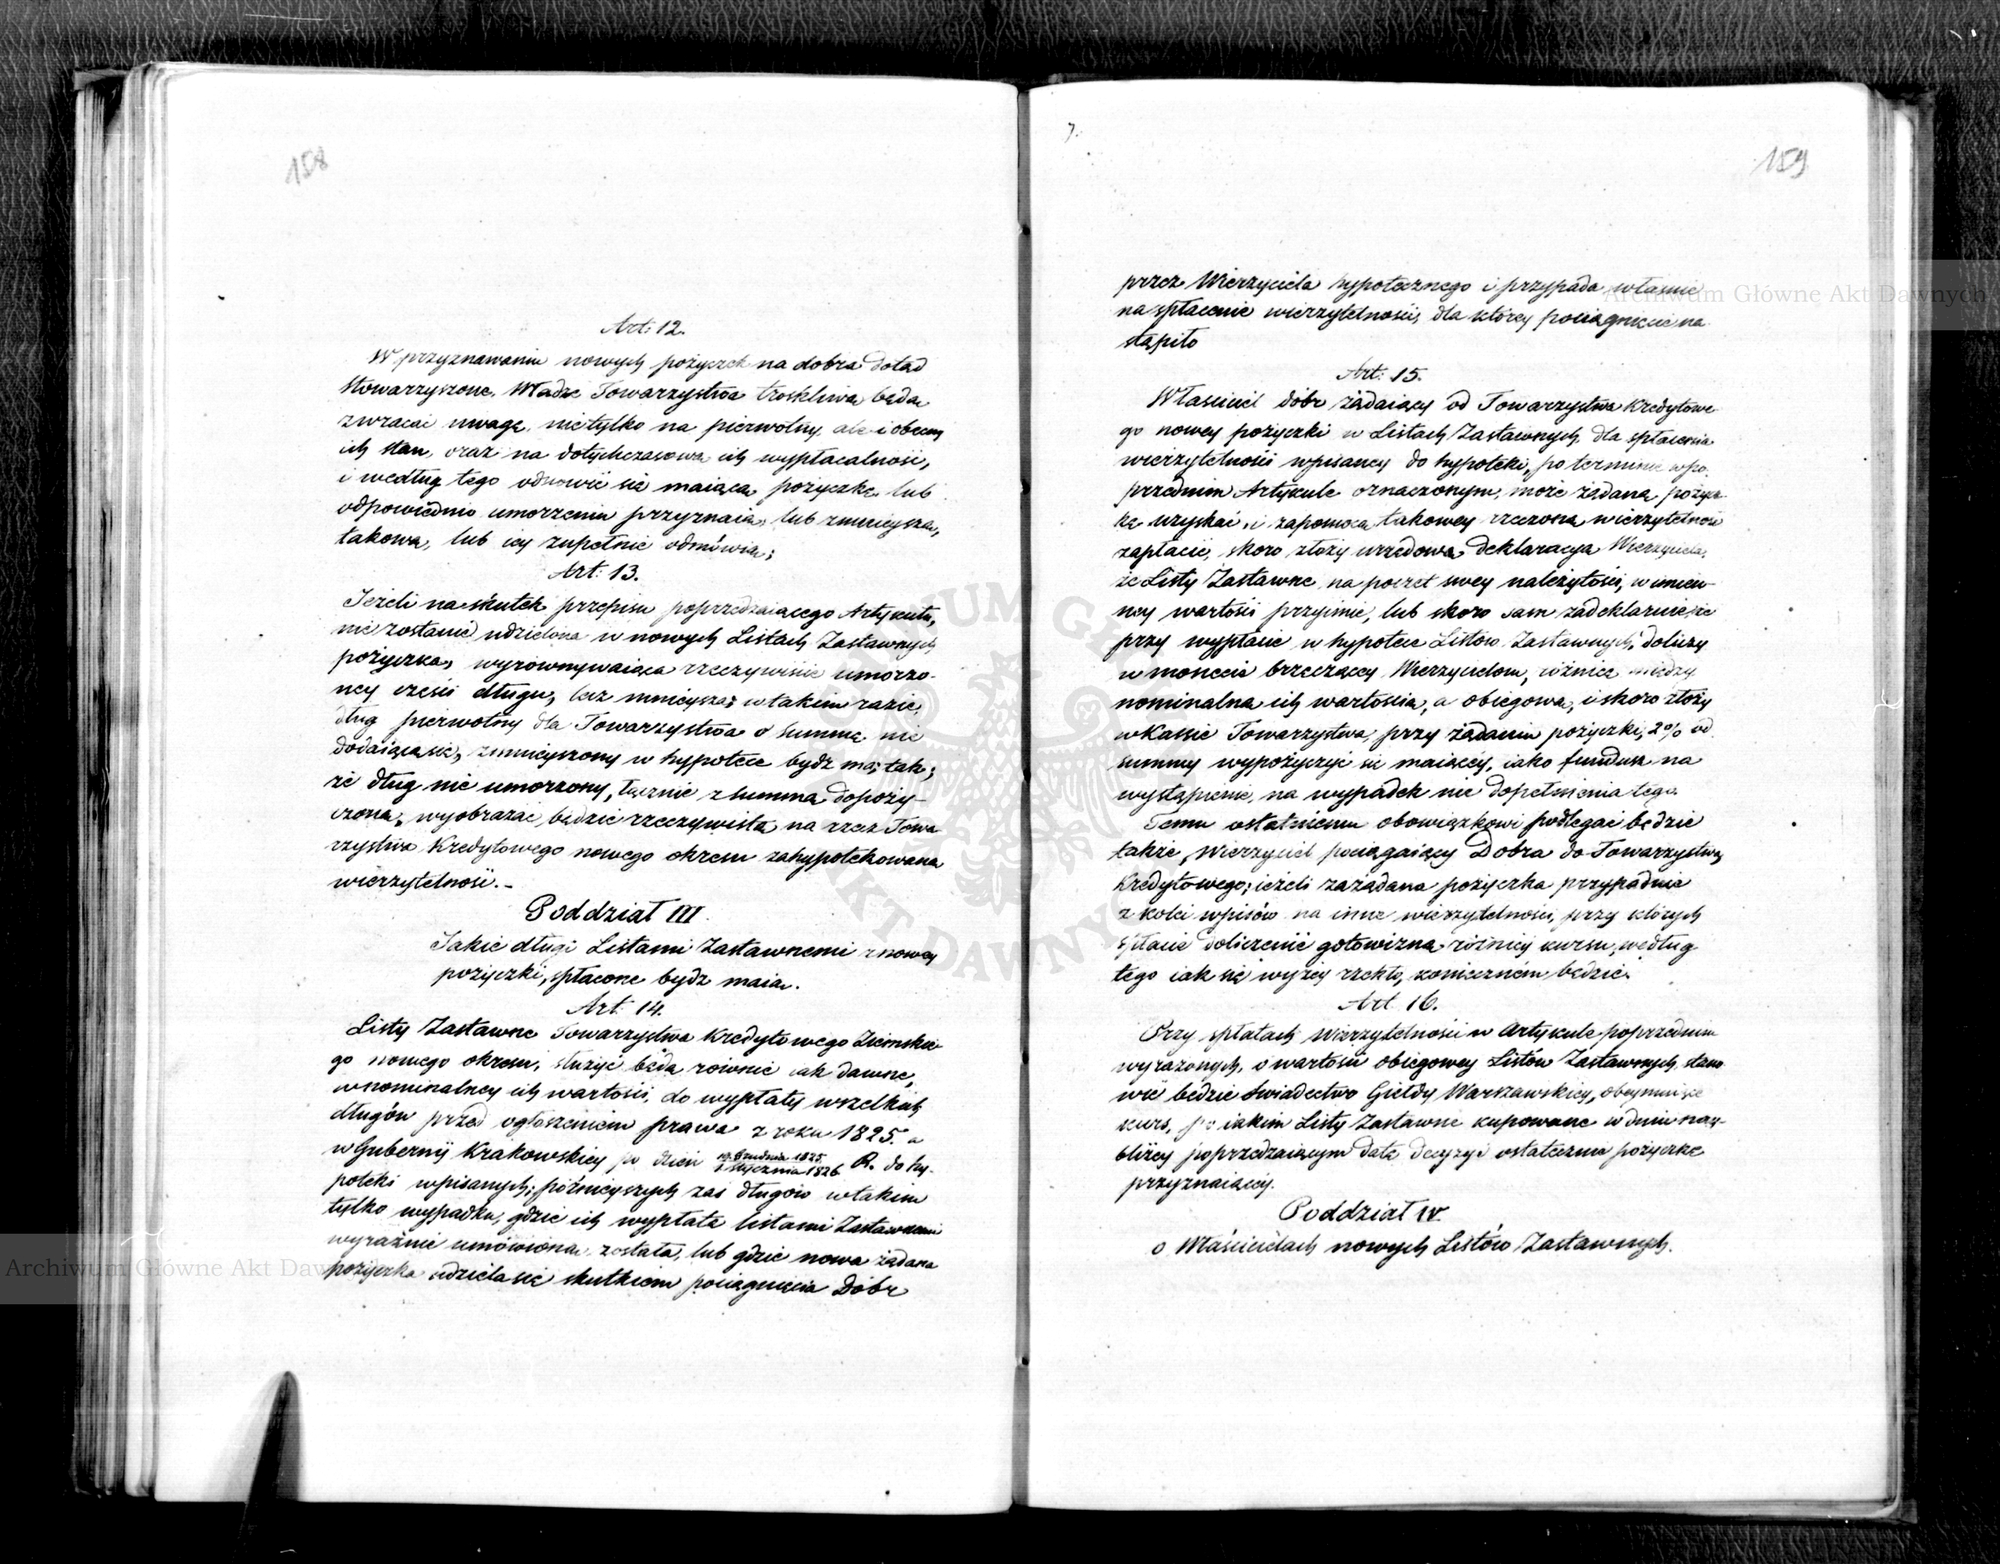 158
Art: 12.
W przyznawaniu nowych pożyczek na dobra dotąd
Stowarzyszone, Władze Towarzystwa troskliwą będą
zwracać uwagę, nietylko na pierwotny, ale i obecny
ich stan, oraz na dotychczasową ich wypłacalność,
i według tego odnowić się maiącą pożyczkę lub
odpowiednio umorzeniu przyznaią, lub zmnieyszą,
takową, lub iey zupełnie odmówią;
Art: 13.
Jeżeli na skutek przepisu poprzedzaiącego Artykułu,
nie zostanie udzieloną w nowych Listach Zastawnych
pożyczka, wyrównywaiąca rzeczywiście umorzo-
ney części długu, lecz mnieysza; w takim razie,
dług pierwotny dla Towarzystwa o summę nie
dodaiącą się, zmnieyszony w hypotece bydź ma; tak,
że dług nie umorzony, łącznie z summą dopoży-
czoną, wyobrażać będzie rzeczywistą na rzecz Towa
rzystwa Kredytowego nowego okresu zahypotekowaną
wierzytelność.-
Poddział III.
Jakie długi Listami Zastawnemi z nowey
pożyczki, spłacone bydź maią.
Art: 14.
Listy Zastawne Towarzystwa Kredytowego Ziemskie
go nowego okresu, służyć będą równie iak dawne,
w nominalney ich wartości, do wypłaty wszelkich
długów przed ogłoszeniem prawa z roku 1825. a
w Gubernij Krakowskiey po dzień 19. Grudnia 1825 R. do hy-
1. Stycznia 1826
poteki wpisanych; późnieyszych zaś długów w takim
tylko wypadku, gdzie ich wypłata listami Zastawnemi
wyraźnie umówiona została, lub gdzie nowa żądana
pożyczka udziela się skutkiem pociągnięcia Dóbr
7.
159
przez Wierzyciela hypotecznego i przypada właśnie
na spłacenie wierzytelności, dla którey pociągnięcie na
stąpiło
Art: 15.
Właściciel dóbr żądaiący od Towarzystwa Kredytowe
go nowey pożyczki w Listach Zastawnych, dla spłacenia
wierzytelności wpisaney do hypoteki, po terminie w po
przednim Artykule oznaczonym, może żądaną pożycz
kę uzyskać, i zapomocą takowey rzeczoną wierzytelność
zapłacić, skoro złoży urzędową deklaracyą Wierzyciela,
że Listy Zastawne na poczet swey należytości, w imien-
ney wartości przyimie, lub skoro sam zadeklaruie, że
przy wypłacie w hypotece Listów Zastawnych, doliczy
w monecie brzęczącey Wierzycielom, różnicę między
nominalną ich wartością, a obiegową, i skoro złoży
w Kassie Towarzystwa, przy żądaniu pożyczki, 2% od
summy wypożyczyć się maiącey, iako fundusz na
wystąpienie, na wypadek nie dopełnienia tego.
Temu ostatniemu obowiązkowi podlegać będzie
także, Wierzyciel pociągaiący Dobra do Towarzystwa
Kredytowego; ieżeli zażądana pożyczka przypadnie
z kolei wpisów na inne wierzytelności, przy których
spłacie doliczenie gotowizną różnicy kursu, według
tego iak się wyżey rzekło, koniecznem będzie.
Art 16.
Przy spłatach Wierzytelności w Artykule poprzednim
wyrażonych, o wartości obiegowey Listów Zastawnych, stano
wić będzie świadectwo Giełdy Warszawskiey, obeymuiące
kurs, po iakim Listy Zastawne kupowane w dniu nay-
bliżey poprzedzaiącym datę decyzyi ostatecznie pożyczkę
przyznaiącey.
Poddział IV.
o Właścicielach nowych Listów Zastawnych.
Archiwum Główne Akt Dawnych
Archiwum Główne Akt Dawnych